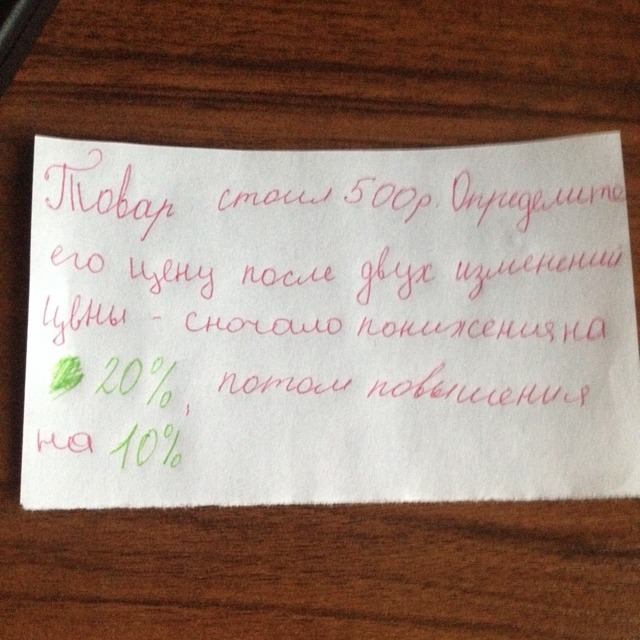 Товар стоил 500р. Определите
его цену после двух изменений
цены - сночало понижения на
20%, потом повышения
на 10%